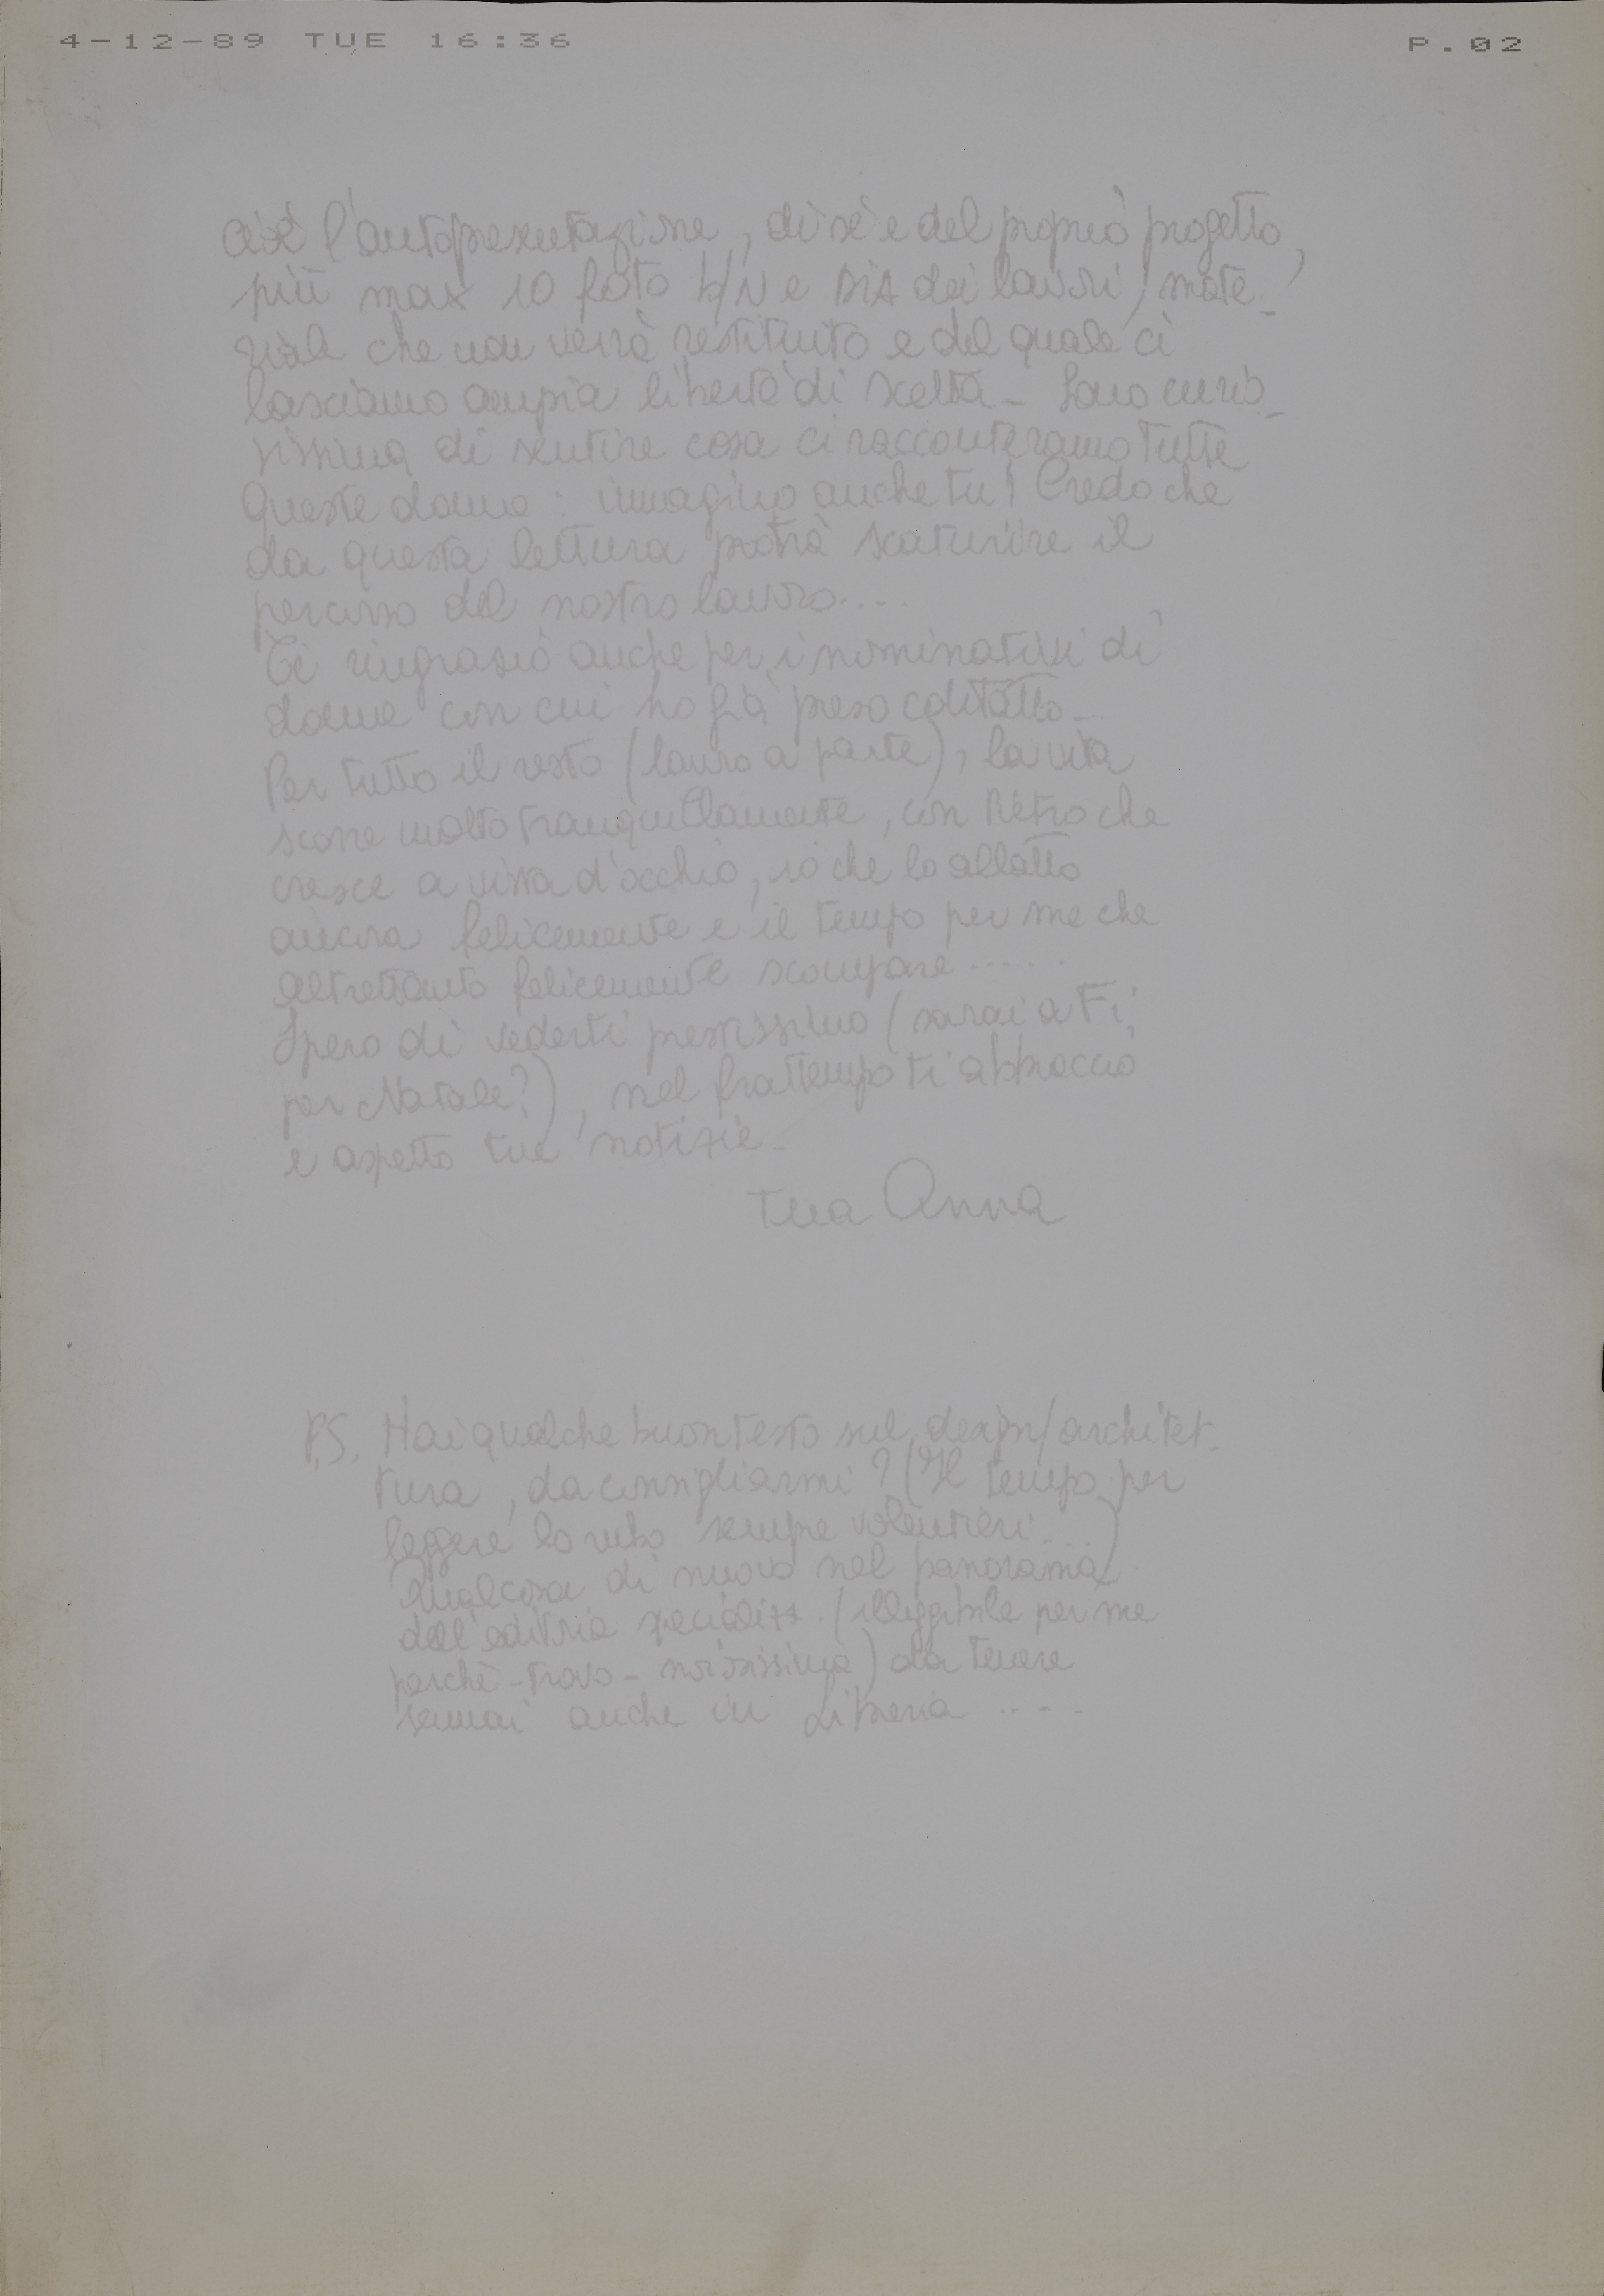 4-12-89 TUE 16:36 P.02
cioè l'autopresentazione, di sè e del proprio progetto,
più max 10 foto b/N e DIA dei lavori, mate-
riale che non verrà restituito e del quale ci
lasciamo ampia libertà di scelta - Sono curio-
sissima di sentire cosa ci racconteranno tutte
queste donne: immagino anche tu! Credo che
da questa lettura potrà scaturire il
percorso del nostro lavoro....
Ti ringrazio anche per i nominativi di
donne con cui ho già preso contatto -
Per tutto il resto (lavoro a parte), la vita
scorre molto tranquillamente, con Pietro che
cresce a vista d'occhio, io che lo allatto
ancora felicemente e il tempo per me che
altrettanto felicemente scompare.....
Spero di vederti prestissimo (sarai a Fi,
per Natale?), nel frattempo ti abbraccio
e aspetto tue notizie -
tua Anna
P.S. Hai qualche buon testo sul design/architet-
tura, da consigliarmi? (Il tempo per
leggere lo rubo sempre volentieri....)
Qualcosa di nuovo nel panorama
dell'editoria specializz. (illeggibile per me
perchè - trovo - noiosissima) da tenere
semmai anche in Libreria ....